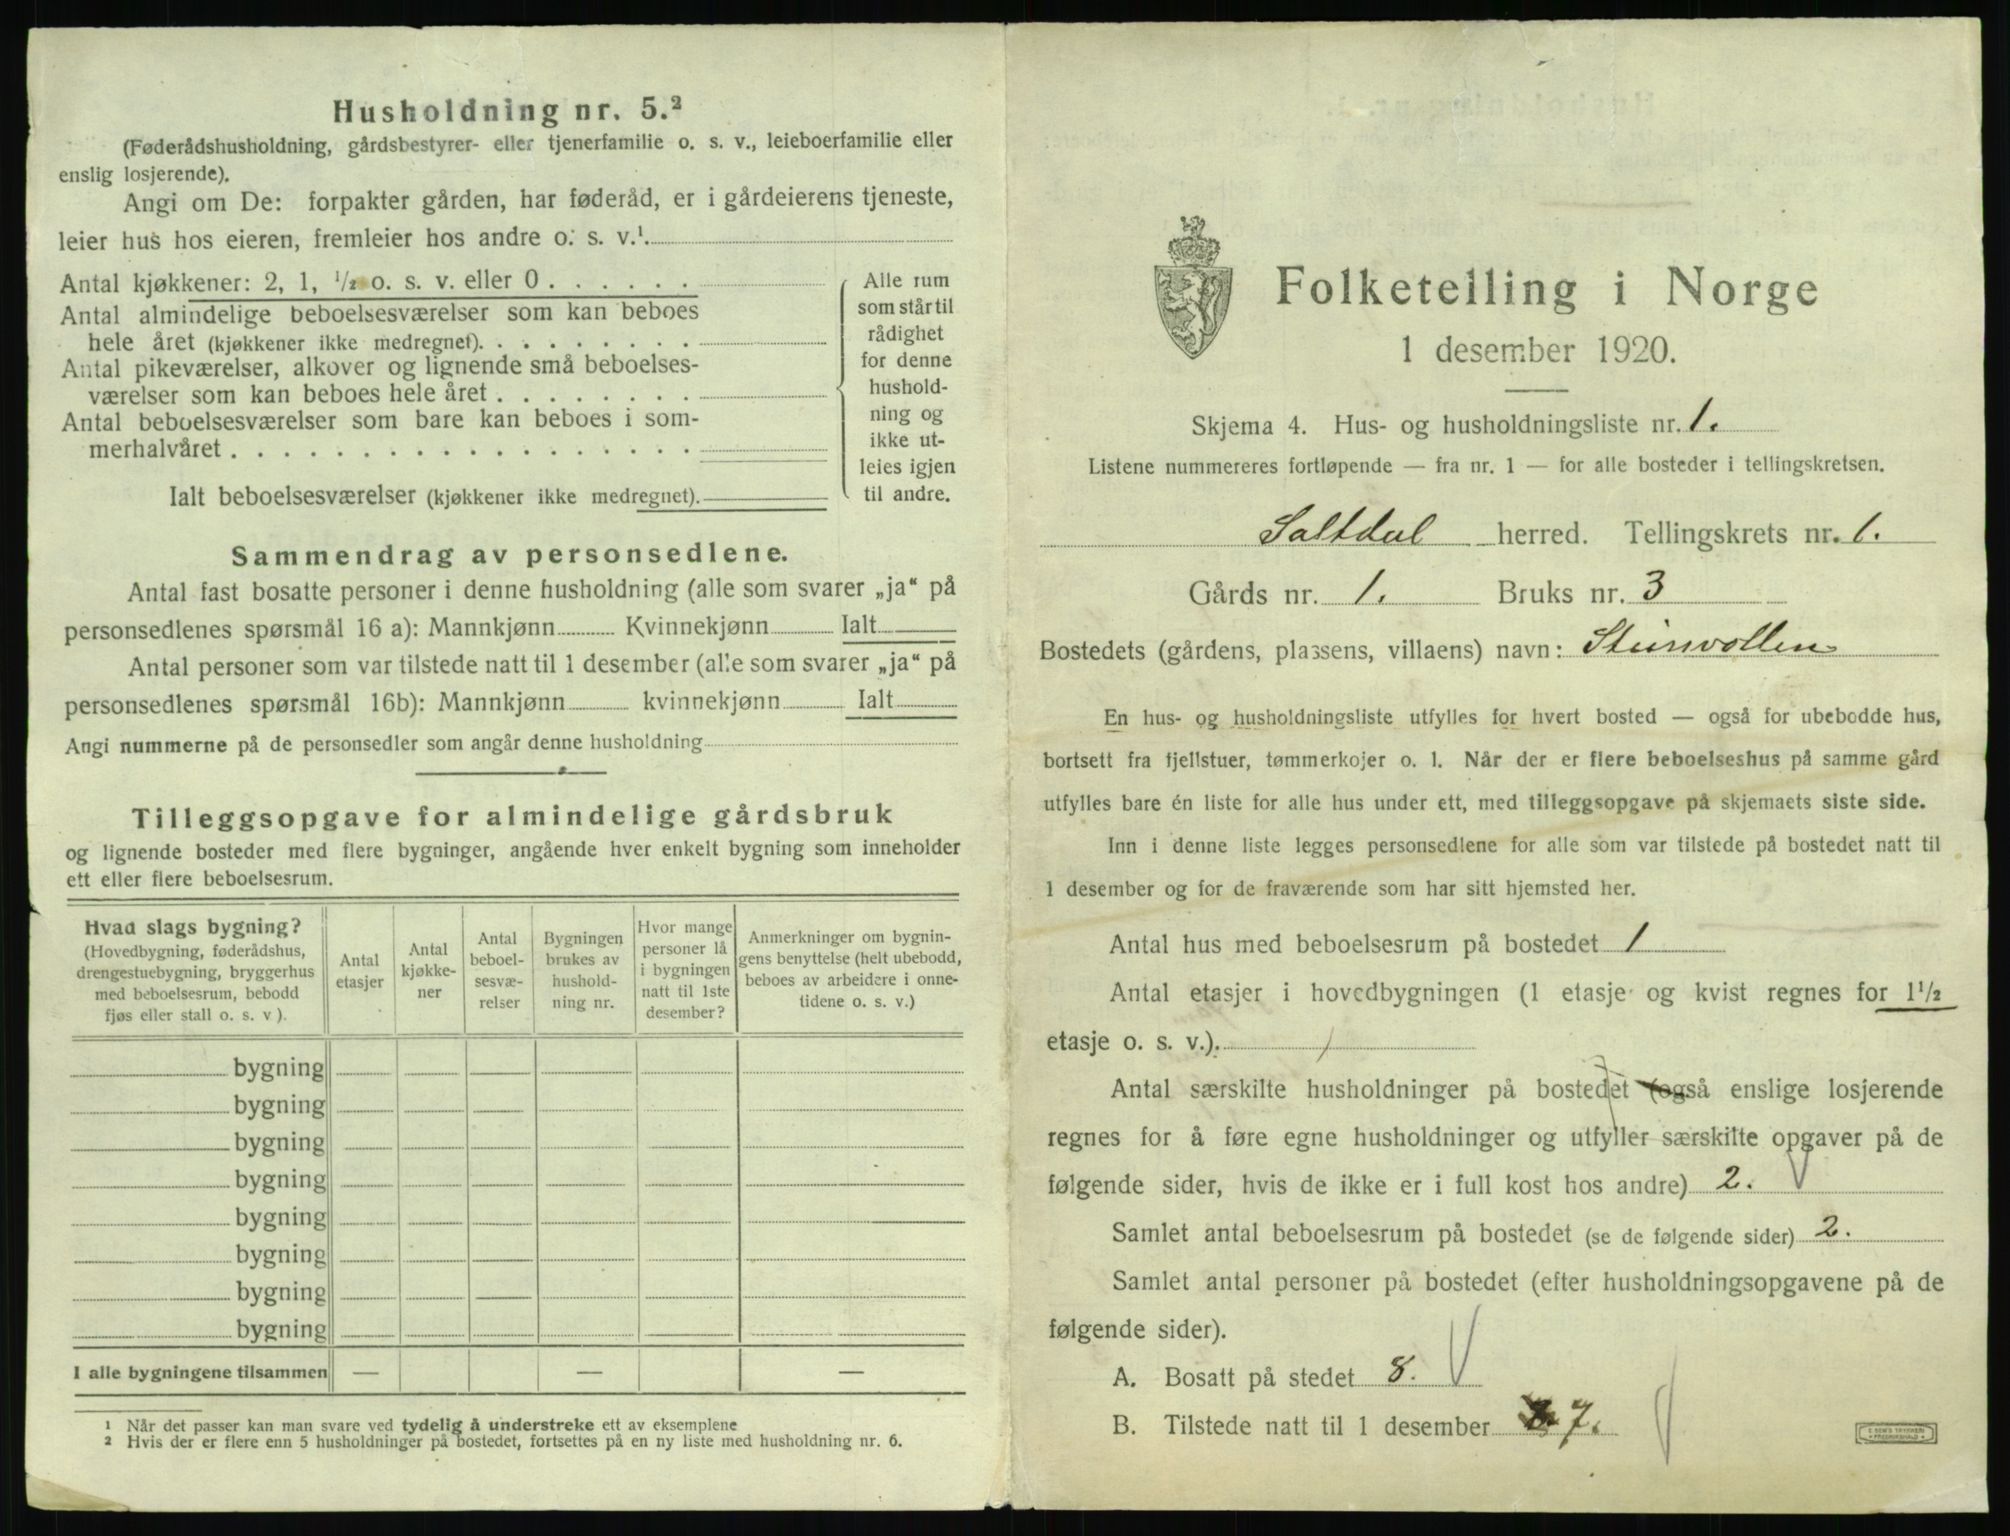 Husholdning nr. 5.²
(Føderådshusholdning, gårdsbestyrer- eller tjenerfamilie o. s. v., leieboerfamilie eller
enslig losjerende).
Angi om De: forpakter gården, har føderåd, er i gårdeierens tjeneste,
leier hus hos eieren, fremleier hos andre o. s. v.¹
Antal kjøkkener: 2, 1, ½ o. s. v. eller 0 . . . . . .
Antal almindelige beboelsesværelser som kan beboes
hele året (kjøkkener ikke medregnet). . . . . . . . .
Antal pikeværelser, alkover og lignende små beboelses-
værelser som kan beboes hele året . . . . . . . .
Antal beboelsesværelser som bare kan beboes i som-
merhalvåret . . . . . . . . . . . . . . . . . .
Ialt beboelsesværelser (kjøkkener ikke medregnet).
Alle rum
som står til
rådighet
for denne
hushold-
ning og
ikke ut-
leies igjen
til andre.
Sammendrag av personsedlene.
Antal fast bosatte personer i denne husholdning (alle som svarer „ja“ på
personsedlenes spørsmål 16 a): Mannkjønn Kvinnekjønn Ialt
Antal personer som var tilstede natt til 1 desember (alle som svarer „ja“ på
personsedlenes spørsmål 16b): Mannkjønn kvinnekjønn Ialt
Angi nummerne på de personsedler som angår denne husholdning
Tilleggsopgave for almindelige gårdsbruk
og lignende bosteder med flere bygninger, angående hver enkelt bygning som inneholder
ett eller flere beboelsesrum.
Hvad slags bygning?
(Hovedbygning, føderådshus,
drengestuebygning, bryggerhus
med beboelsesrum, bebodd
fjøs eller stall o. s. v ).
Antal
etasjer
Antal
kjøkke-
ner
Antal
beboel-
sesvæ-
relser
Bygningen
brukes av
hushold-
ning nr.
Hvor mange
personer lå
i bygningen
natt til 1ste
desember?
Anmerkninger om bygnin-
gens benyttelse (helt ubebodd,
beboes av arbeidere i onne-
tidene o. s. v.)
bygning
bygning
bygning
bygning
bygning
bygning
bygning
bygning
I alle bygningene tilsammen — — —
¹ Når det passer kan man svare ved tydelig å understreke ett av eksemplene
² Hvis der er flere enn 5 husholdninger på bostedet, fortsettes på en ny liste med husholdning nr. 6.
Folketelling i Norge
1 desember 1920.
Skjema 4. Hus- og husholdningsliste nr. 1.
Listene nummereres fortløpende — fra nr. 1 — for alle bosteder i tellingskretsen.
Saltdal herred. Tellingskrets nr. 1.
Gårds nr. 1. Bruks nr. 3
Bostedets (gårdens, plassens, villaens) navn: Steinvollen
En hus- og husholdningsliste utfylles for hvert bosted — også for ubebodde hus,
bortsett fra fjellstuer, tømmerkojer o. l. Når der er flere beboelseshus på samme gård
utfylles bare én liste for alle hus under ett, med tilleggsopgave på skjemaets siste side.
Inn i denne liste legges personsedlene for alle som var tilstede på bostedet natt til
1 desember og for de fraværende som har sitt hjemsted her.
Antal hus med beboelsesrum på bostedet 1
Antal etasjer i hovedbygningen (1 etasje og kvist regnes for 1½
etasje o. s. v.). 1
Antal særskilte husholdninger på bostedet (også enslige losjerende
regnes for å føre egne husholdninger og utfyller særskilte opgaver på de
følgende sider, hvis de ikke er i full kost hos andre) 2.
Samlet antal beboelsesrum på bostedet (se de følgende sider) 2.
Samlet antal personer på bostedet (efter husholdningsopgavene på de
følgende sider).
A. Bosatt på stedet 8.
B. Tilstede natt til 1 desember 7.